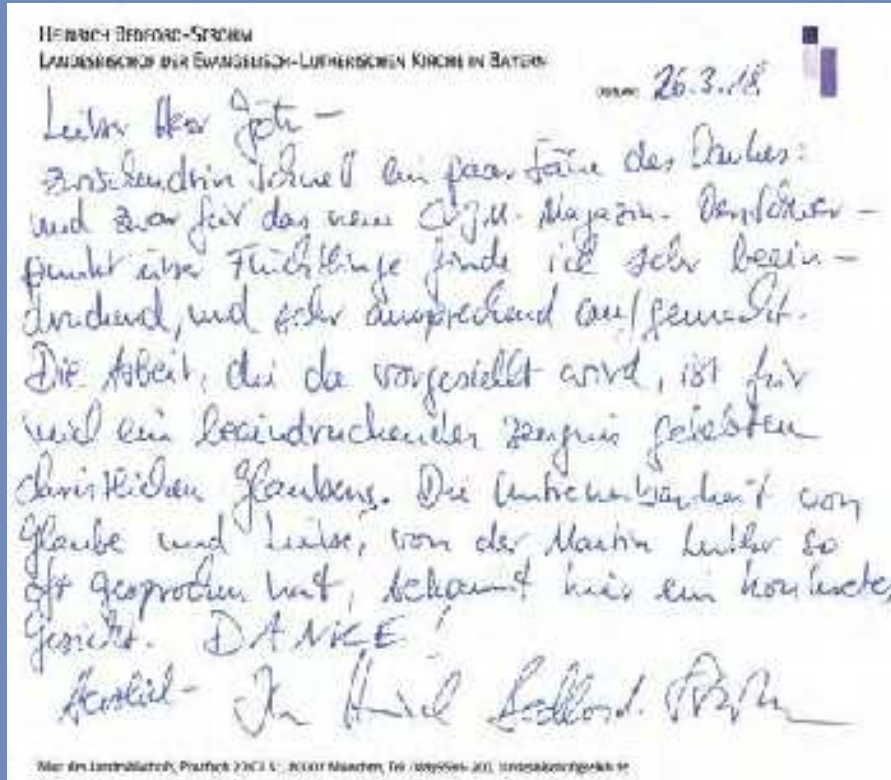 HEINRICH BEDFORD-STROHM
LANDESBISCHOF DER EVANGELISCH-LUTHERISCHEN KIRCHE IN BAYERN
26.3.18
Lieber Herr Götz –
zwischendrin schnell ein paar Sätze des Dankes:
und zwar für das neue CVJM-Magazin. Den Schwer-
punkt über Flüchtlinge finde ich sehr beein-
druckend, und sehr ansprechend aufgemacht.
Die Arbeit, die da vorgestellt wird, ist für
mich ein beeindruckendes Zeugnis gelebten
christlichen Glaubens. Die Untrennbarkeit von
Glaube und Liebe, von der Martin Luther so
oft gesprochen hat, bekommt hier ein konkretes
Gesicht. DANKE!
Herzlich – Ihr Heinrich Bedford-Strohm
München, Tel.